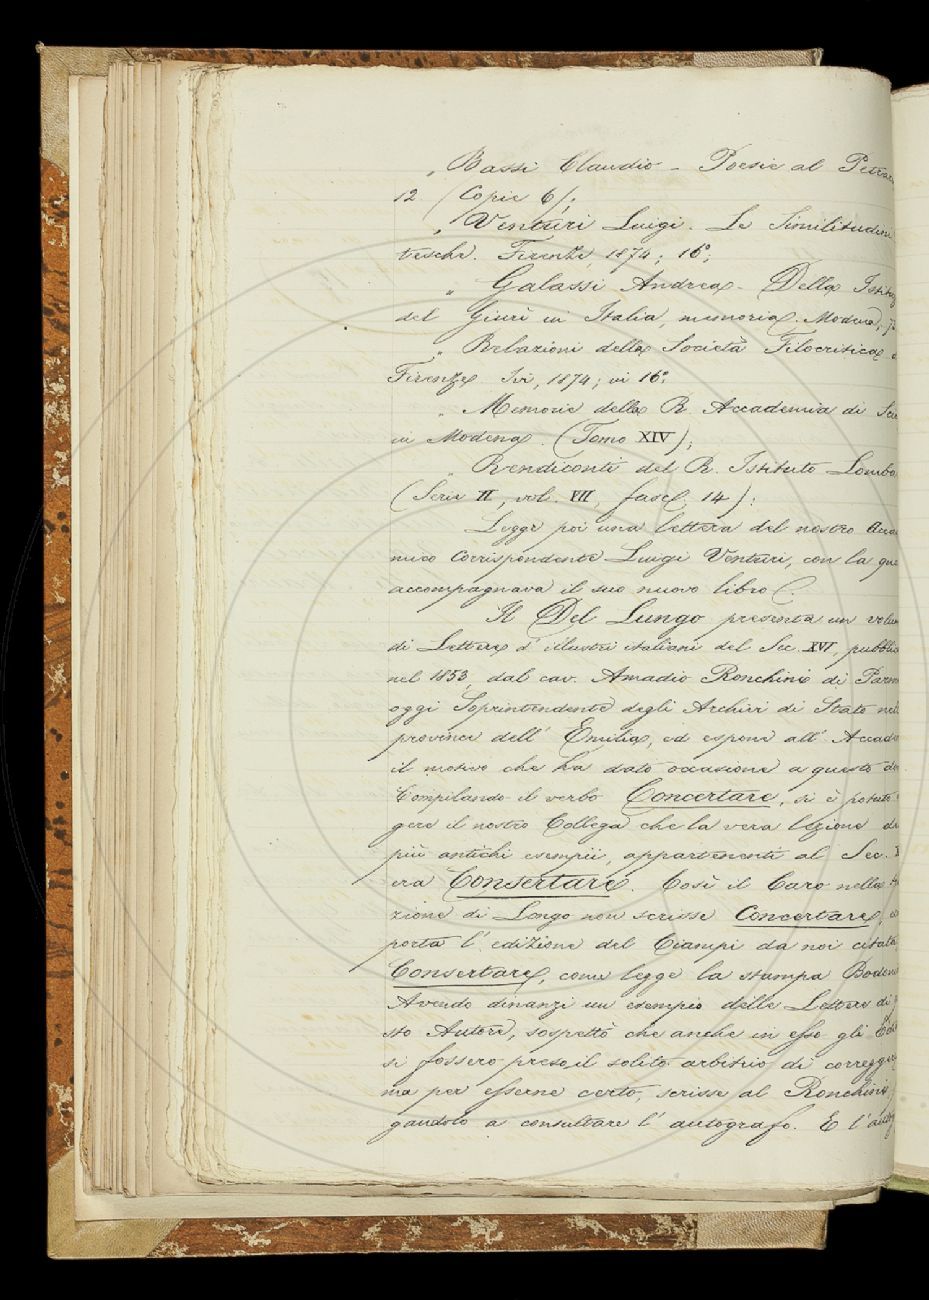 „ Bassi Claudio - Poesie al Petrar
12 (Copie 6);
„ Venturi Luigi. Le Similitudini
tesche. Firenze, 1874; 16°;
„ Galassi Andrea - Della Istituz
del Giurì in Italia, memoria. Modena,
„ Relazioni della Società Filocritica
Firenze Ivi, 1874; in 16°;
„ Memorie della R. Accademia di Sci
in Modena. (Tomo XIV);
„ Rendiconti del R. Istituto Lomba
(Serie II, vol. VII, fasc. 14):
Legge poi una lettera del nostro Acca
mico corrispondente Luigi Venturi, con la qua
accompagnava il suo nuovo libro.
Il Del Lungo presenta un volu
di Lettere d'illustri italiani del Sec. XVI, pubblic
nel 1853, dal cav. Amadio Ronchini di Parm
oggi Soprintendente degli Archivi di Stato nell
province dell'Emilia, ed espone all'Accade
il motivo che ha dato occasione a questo do
Compilando il verbo Concertare, si è potuto
gere il nostro Collega che la vera lezione de
più antichi esempii, appartenenti al Sec. X
era Consertare. Così il Caro nella tra
zione di Longo non scrisse Concertare, co
porta l'edizione del Ciampi da noi citata
Consertare, come legge la stampa Bodon
Avendo dinanzi un esempio delle Lettere di q
sto Autore, sospettò che anche in esso gli Edit
si fossero preso il solito arbitrio di correggere
ma per esserne certo, scrisse al Ronchini
gandolo a consultare l'autografo. E l'autog